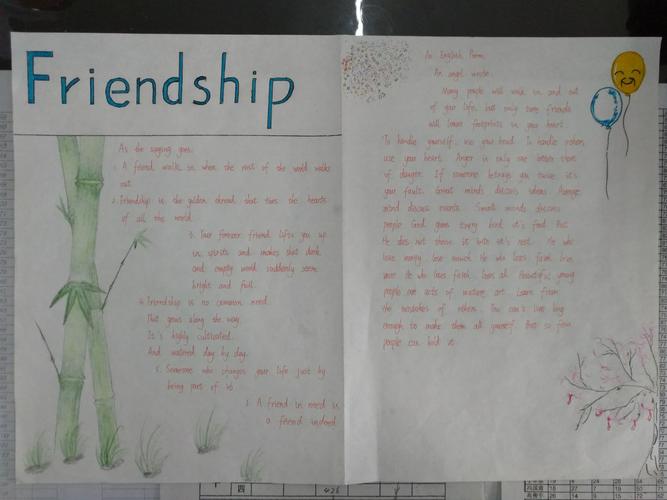 Friendship
As the saying goes:
1. A friend walks in when the rest of the world walks
out.
2. Friendship is the golden thread that ties the hearts
of all the world.
3. Your forever friend lifts you up
in spirits and makes that dark
and empty world suddenly seem
bright and full.
4. Friendship is no common weed
That grows along the way.
It's highly cultivated.
And watered day by day.
5. Someone who changes your life just by
being part of it.
A friend in need is
a friend indeed.
An English Poem
An angel wrote:
Many people will walk in and out
of your life, but only true friends
will leave footprints in your heart.
To handle yourself, use your head. To handle others,
use your heart. Anger is only one letter short
of danger. If someone betrays you twice it's
you fault. Great minds discuss ideas Average
mind discuss events. Small minds discuss
people God gives Every bird it's food But
He does not throw it into it's nest. He who
loses money, lose much. He who loses
more He who loses faith, loses all. Beautiful young
people are acts of nature, art. Learn from
the mistakes of others. You can't live long
enough to make them all yourself. But so few
people can hold it.
四